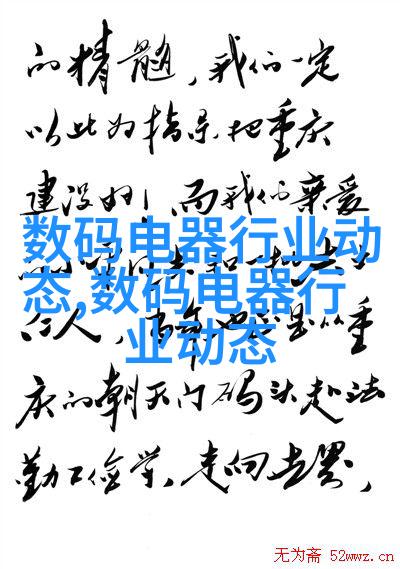 的精髓，我们一定
以此为指导把重庆
建设好！而我们亲爱
数码电器行业动
态,数码电器行
业动态
行人，也正是从重
庆的朝天门码头赴法
勤工俭学，走向世界，
无为斋 52wwz.cn